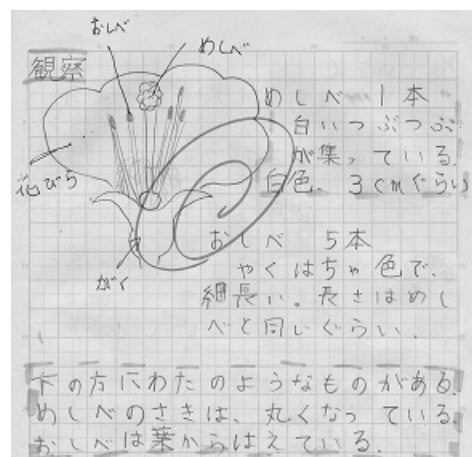 おしべ
めしべ
観察
めしべ 1本
白いつぶつぶ
が集っている。
白色。3cmぐらい
花びら
おしべ 5本
やくはちゃ色で、
細長い。長さはめし
べと同じぐらい。
がく
下の方にわたのようなものがある。
めしべのさきは、丸くなっている。
おしべは葉からはえている。